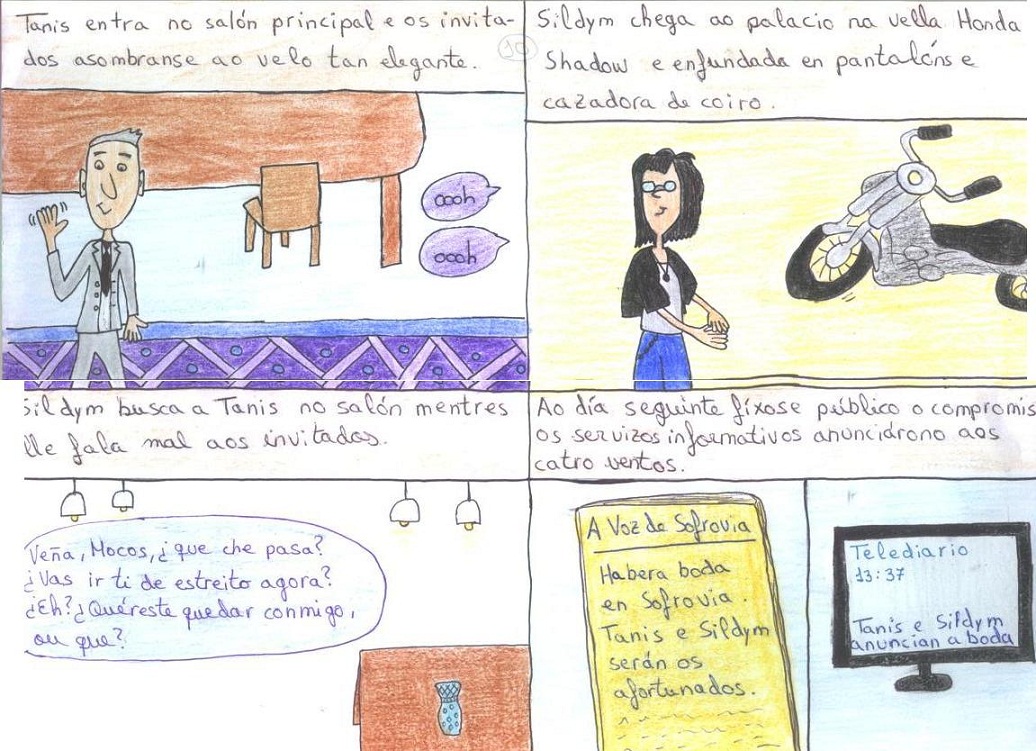 Tanis entra no salón principal e os invita-
dos asombranse ao velo tan elegante.
10
oooh
oooh
Sildym chega ao palacio na vella Honda
Shadow e enfundada en pantalóns e
cazadora de coiro.
Sildym busca a Tanis no salón mentres
lle fala mal aos invitados.
Veña, Mocos, ¿que che pasa?
¿Vas ir ti de estreito agora?
¿Eh? ¿Quéreste quedar conmigo,
ou que?
Ao día seguinte fíxose público o compromis
os servizos informativos anunciárono aos
catro ventos.
A Voz de Sofrovia
Habera boda
en Sofrovia.
Tanis e Sildym
serán os
afortunados.
Telediario
13:37
Tanis e Sildym
anuncian a boda